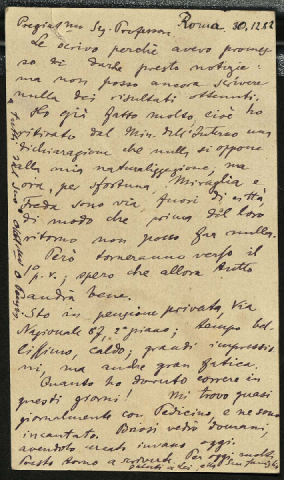 Pregiat.mo Sig. Professore. Roma 30.12.82
Le scrivo perchè avevo promes-
so di darle presto notizie:
ma non posso ancora scrivere
nulla dei risultati ottenuti.
Ho già fatto molto, cioè ho
ritirato dal Min. dell'Interno una
dichiarazione che nulla si oppone
alla mia naturalizzazione, ma
ora, per sfortuna, Miraglia e
Freda sono via, fuori di città
di modo che prima del loro
ritorno non posso far nulla.
Però torneranno verso il
1º p. v.; spero che allora tutto
andrà bene.
Sto in pensione privata, Via
Nazionale 87, 2º piano; tempo bel-
lissimo, caldo; grandi impressio-
ni, ma anche gran fatica.
Quanto ho dovuto correre in
questi giorni! Mi trovo quasi
giornalmente con Pedicino, e ne sono
incantato. Briosi vedrò domani,
avendolo cercato invano oggi.
Presto torno a scriverle. Per oggi molti
saluti a Lei, alla Sua famiglia
e tutti